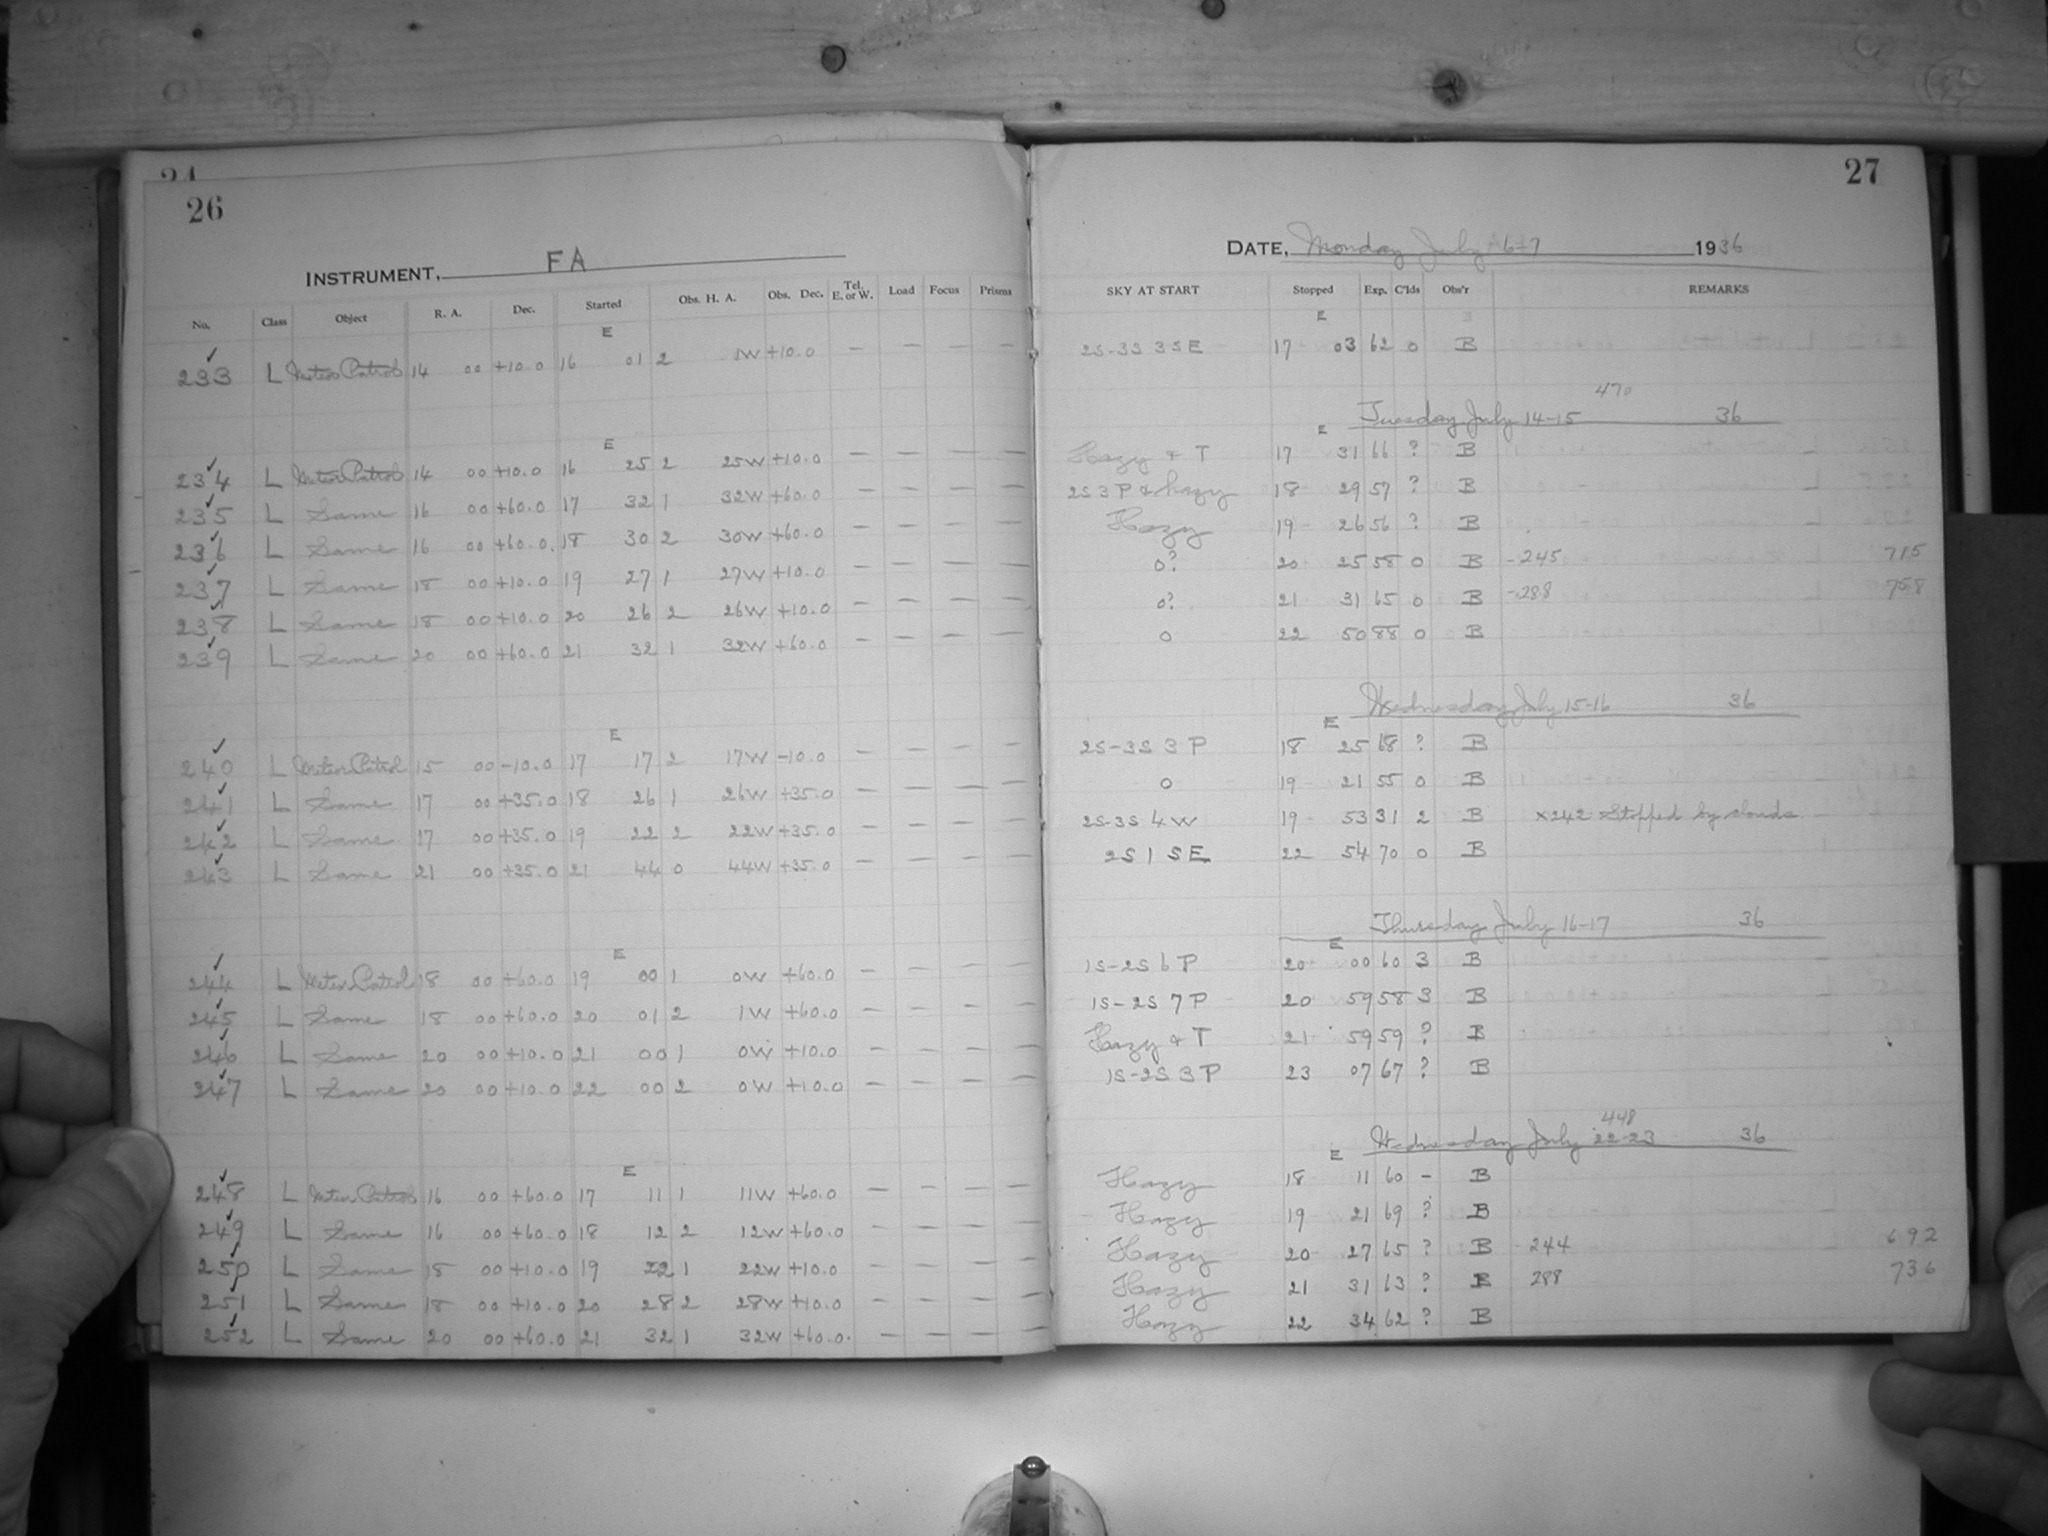 24
26
INSTRUMENT, FA
No. Class Object R. A. Dec. Started Obs. H. A. Obs. Dec. Tel. E. or W. Load Focus Prisms
E
233 L Meteor Patrol 14 00 +10.0 16 01 2 1W +10.0 — — — —
E
234 L Meteor Patrol 14 00 +10.0 16 25 2 25W +10.0 — — — —
235 L Same 16 00 +60.0 17 32 1 32W +60.0 — — — —
236 L Same 16 00 +60.0 18 30 2 30W +60.0 — — — —
237 L Same 18 00 +10.0 19 27 1 27W +10.0 — — — —
238 L Same 18 00 +10.0 20 26 2 26W +10.0 — — — —
239 L Same 20 00 +60.0 21 32 1 32W +60.0 — — — —
E
240 L Meteor Patrol 15 00 -10.0 17 17 2 17W -10.0 — — — —
241 L Same 17 00 +35.0 18 26 1 26W +35.0 — — — —
242 L Same 17 00 +35.0 19 22 2 22W +35.0 — — — —
243 L Same 21 00 +35.0 21 44 0 44W +35.0 — — — —
E
244 L Meteor Patrol 18 00 +60.0 19 00 1 0W +60.0 — — — —
245 L Same 18 00 +60.0 20 01 2 1W +60.0 — — — —
246 L Same 20 00 +10.0 21 00 1 0W +10.0 — — — —
247 L Same 20 00 +10.0 22 00 2 0W +10.0 — — — —
E
248 L Meteor Patrol 16 00 +60.0 17 11 1 11W +60.0 — — — —
249 L Same 16 00 +60.0 18 12 2 12W +60.0 — — — —
250 L Same 18 00 +10.0 19 22 1 22W +10.0 — — — —
251 L Same 18 00 +10.0 20 28 2 28W +10.0 — — — —
252 L Same 20 00 +60.0 21 32 1 32W +60.0 — — — —
27
DATE, Monday July 6-7 1936
SKY AT START Stopped Exp. C'lds Obs'r REMARKS
E
2S-3S 3SE 17 03 62 0 B
470
Tuesday July 14-15 36
E
Hazy & T 17 31 66 ? B
2S 3P & hazy 18 29 57 ? B
Hazy 19 26 56 ? B
0? 20 25 58 0 B -245 715
0? 21 31 65 0 B -288 758
0 22 50 88 0 B
Wednesday July 15-16 36
E
2S-3S 3P 18 25 68 ? B
0 19 21 55 0 B
2S-3S 4W 19 53 31 2 B x242 Stopped by clouds.
2S 1 SE 22 54 70 0 B
Thursday July 16-17 36
E
1S-2S 6P 20 00 60 3 B
1S-2S 7P 20 59 58 3 B
Hazy & T 21 59 59 ? B
1S-2S 3P 23 07 67 ? B
448
Wednesday July 22-23 36
E
Hazy 18 11 60 - B
Hazy 19 21 69 ? B
Hazy 20 27 65 ? B -244 692
Hazy 21 31 63 ? B 288 736
Hazy 22 34 62 ? B